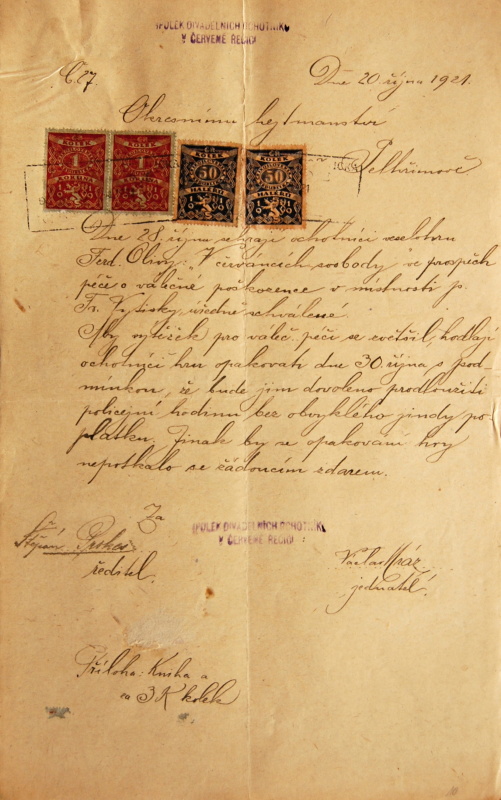 SPOLEK DIVADELNÍCH OCHOTNÍKŮ
V ČERVENÉ ŘEČICI
Č. 27.
Dne 20. října 1921.
Okresnímu hejtmanství
Pelhřimově
ČR
KOLEK
1
KORUNA
ČR
KOLEK
1
KORUNA
ČR
KOLEK
50
HALÉŘŮ
ČR
KOLEK
50
HALÉŘŮ
Dne 28. října sehrají ochotníci zdejší hru
Ferd. Olivy: "V červáncích svobody" ve prospěch
péče o válečné poškozence v místnosti p.
Fr. Vytisky, úředně schválené.
Aby výtěžek pro váleč. péči se zvětšil, hodlají
ochotníci hru opakovati dne 30. října s pod-
mínkou, že bude jim dovoleno prodloužiti
policejní hodinu bez obvyklého jindy po-
platku. Jinak by se opakování hry
nepotkalo se žádoucím zdarem.
Za
SPOLEK DIVADELNÍCH OCHOTNÍKŮ
V ČERVENÉ ŘEČICI
Štěpán Prokeš
ředitel.
Václav Mráz
jednatel.
Příloha: Kniha a
za 3 K kolek